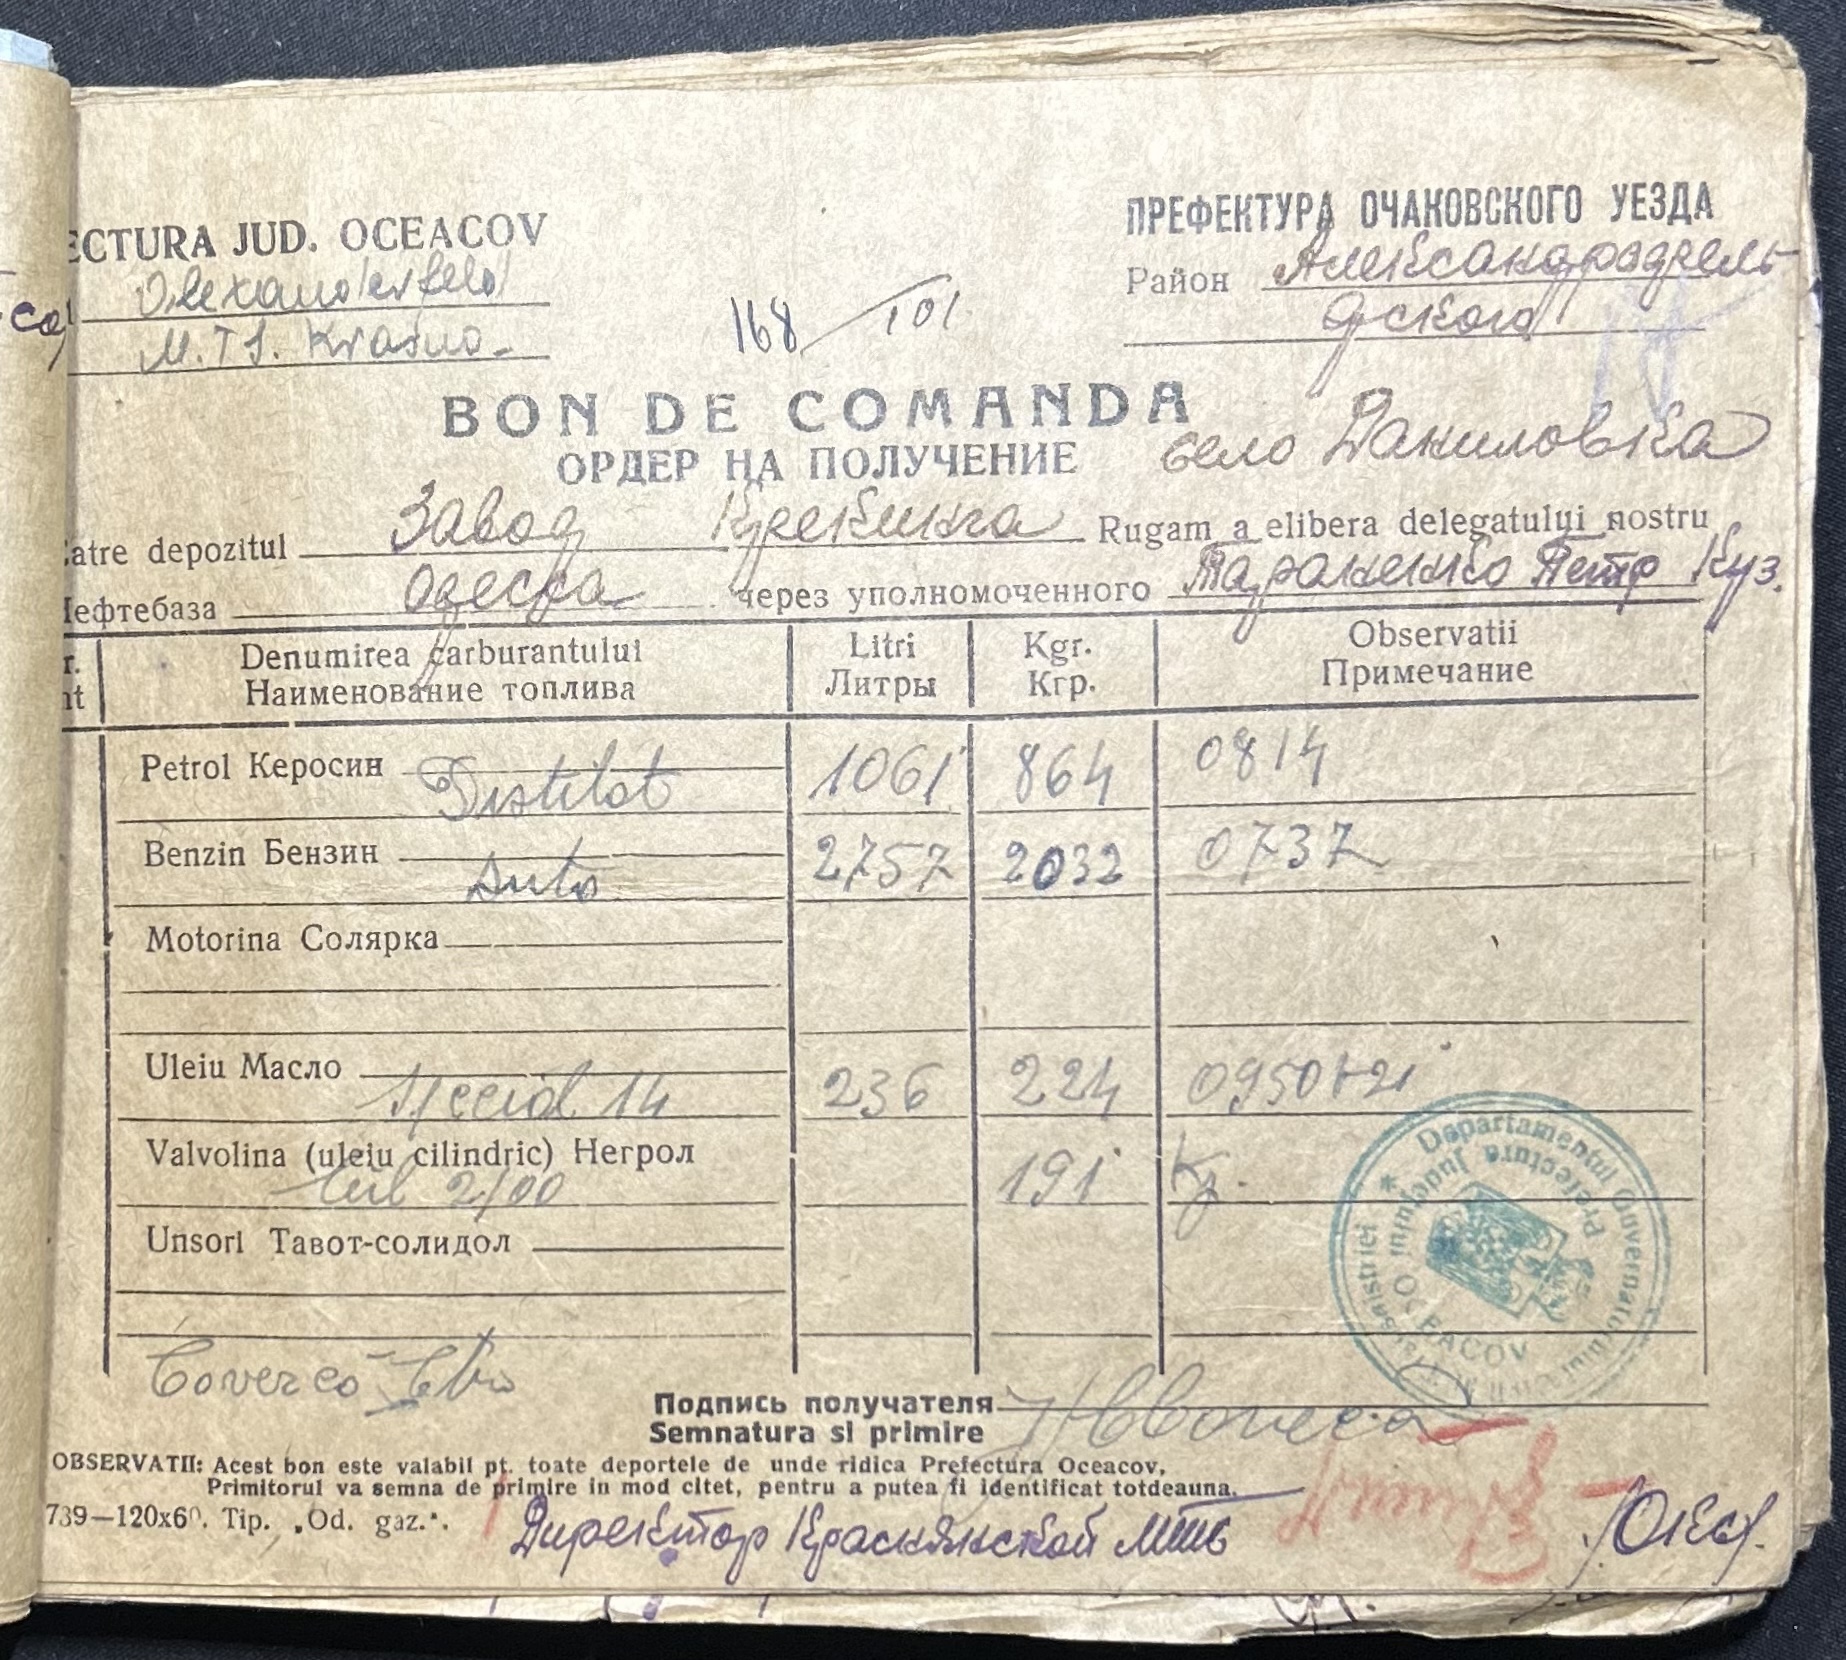 ECTURA JUD. OCEACOV
ПРЕФЕКТУРА ОЧАКОВСКОГО УЕЗДА
Alexanderfeld
Район Александрфель
M.T.S. Krasno-
168/101
дского
BON DE COMANDA
ОРДЕР НА ПОЛУЧЕНИЕ
село Даниловка
atre depozitul Завод Кребинга Rugam a elibera delegatului nostru
Нефтебаза Одесса через уполномоченного Тараненко Петр Куз.
r. Denumirea carburantului Litri Kgr. Observatii
nt Наименование топлива Литры Кгр. Примечание
Petrol Керосин Distilat 1061 864 0814
Benzin Бензин Auto 2757 2032 0737
Motorina Солярка
Uleiu Масло special 14 236 224 0950+21
Valvolina (uleiu cilindric) Негрол
cil 2/00 191 Kg.
Unsori Тавот-солидол
Departamentul
Guvernatorul
Prefectura Judeţului
OCEACOV
Подпись получателя
Semnatura si primire
OBSERVATII: Acest bon este valabil pt. toate deportele de unde ridica Prefectura Oceacov,
Primitorul va semna de primire in mod citet, pentru a putea fi identificat totdeauna.
739—120x60. Tip. „Od. gaz.".
Директор Краснянской МТС